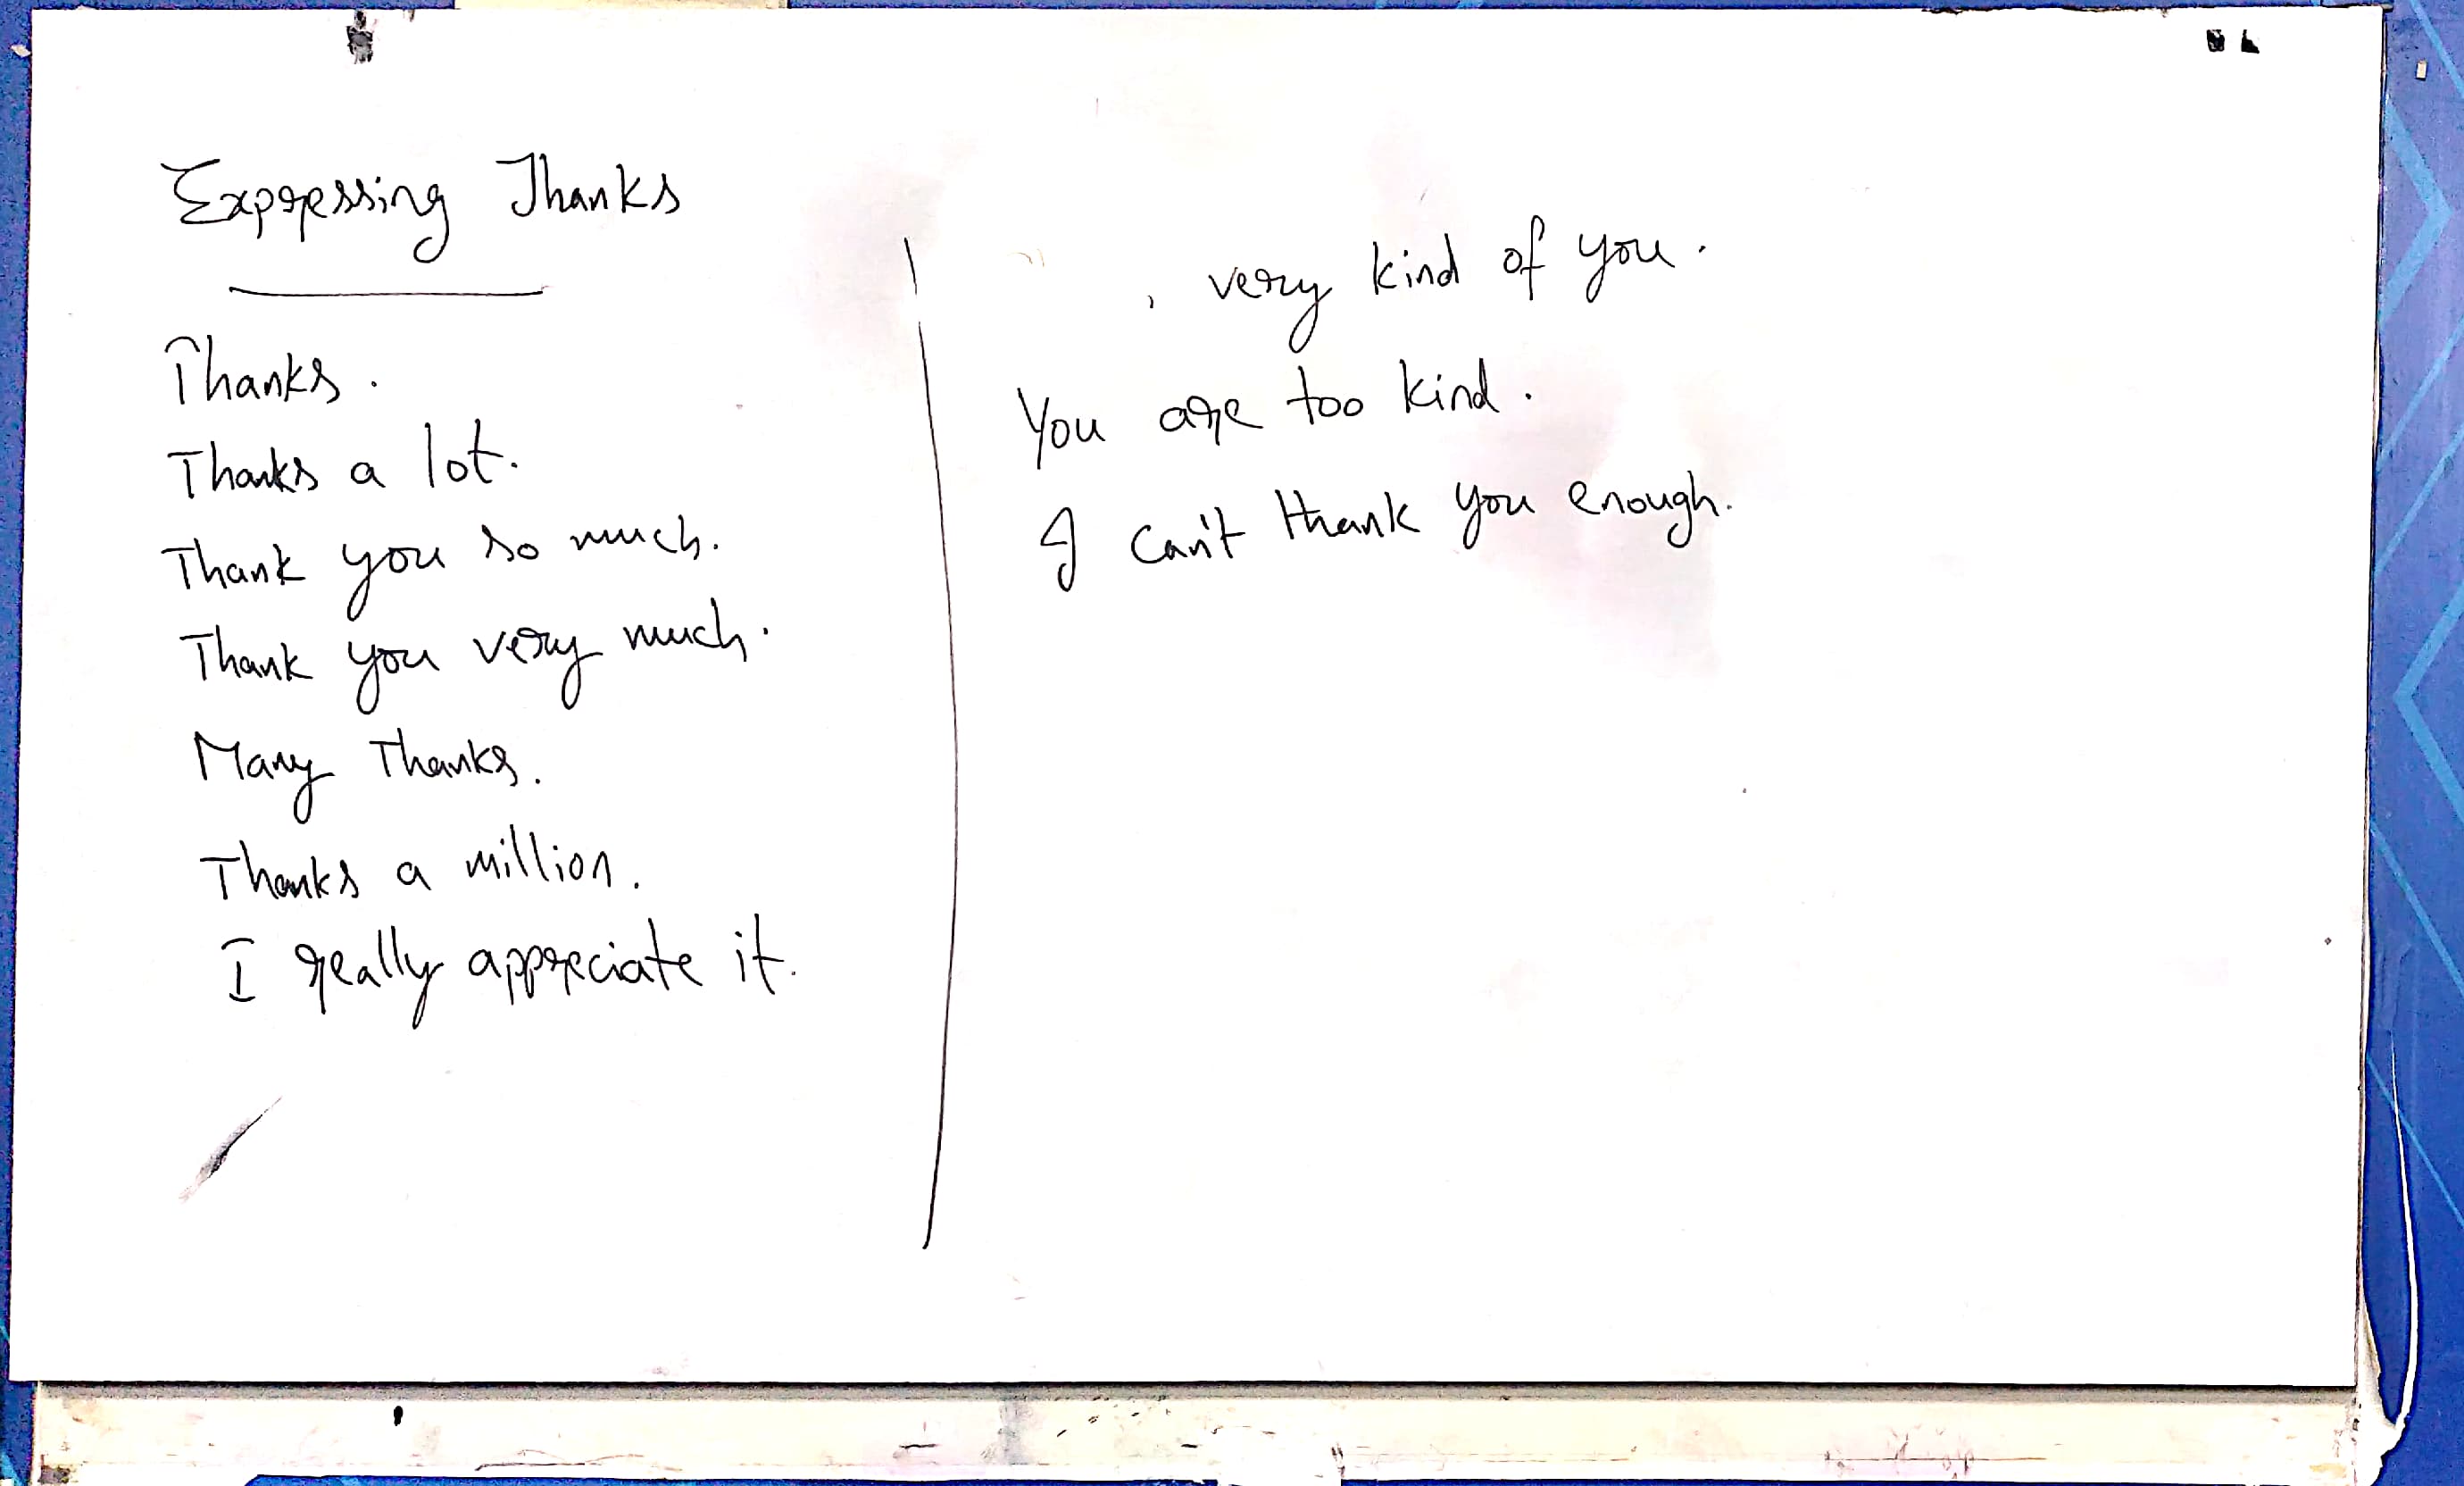 Expressing Thanks
Thanks.
Thanks a lot.
Thank you so much.
Thank you very much.
Many Thanks.
Thanks a million.
I really appreciate it.
very kind of you.
You are too kind.
I can't thank you enough.